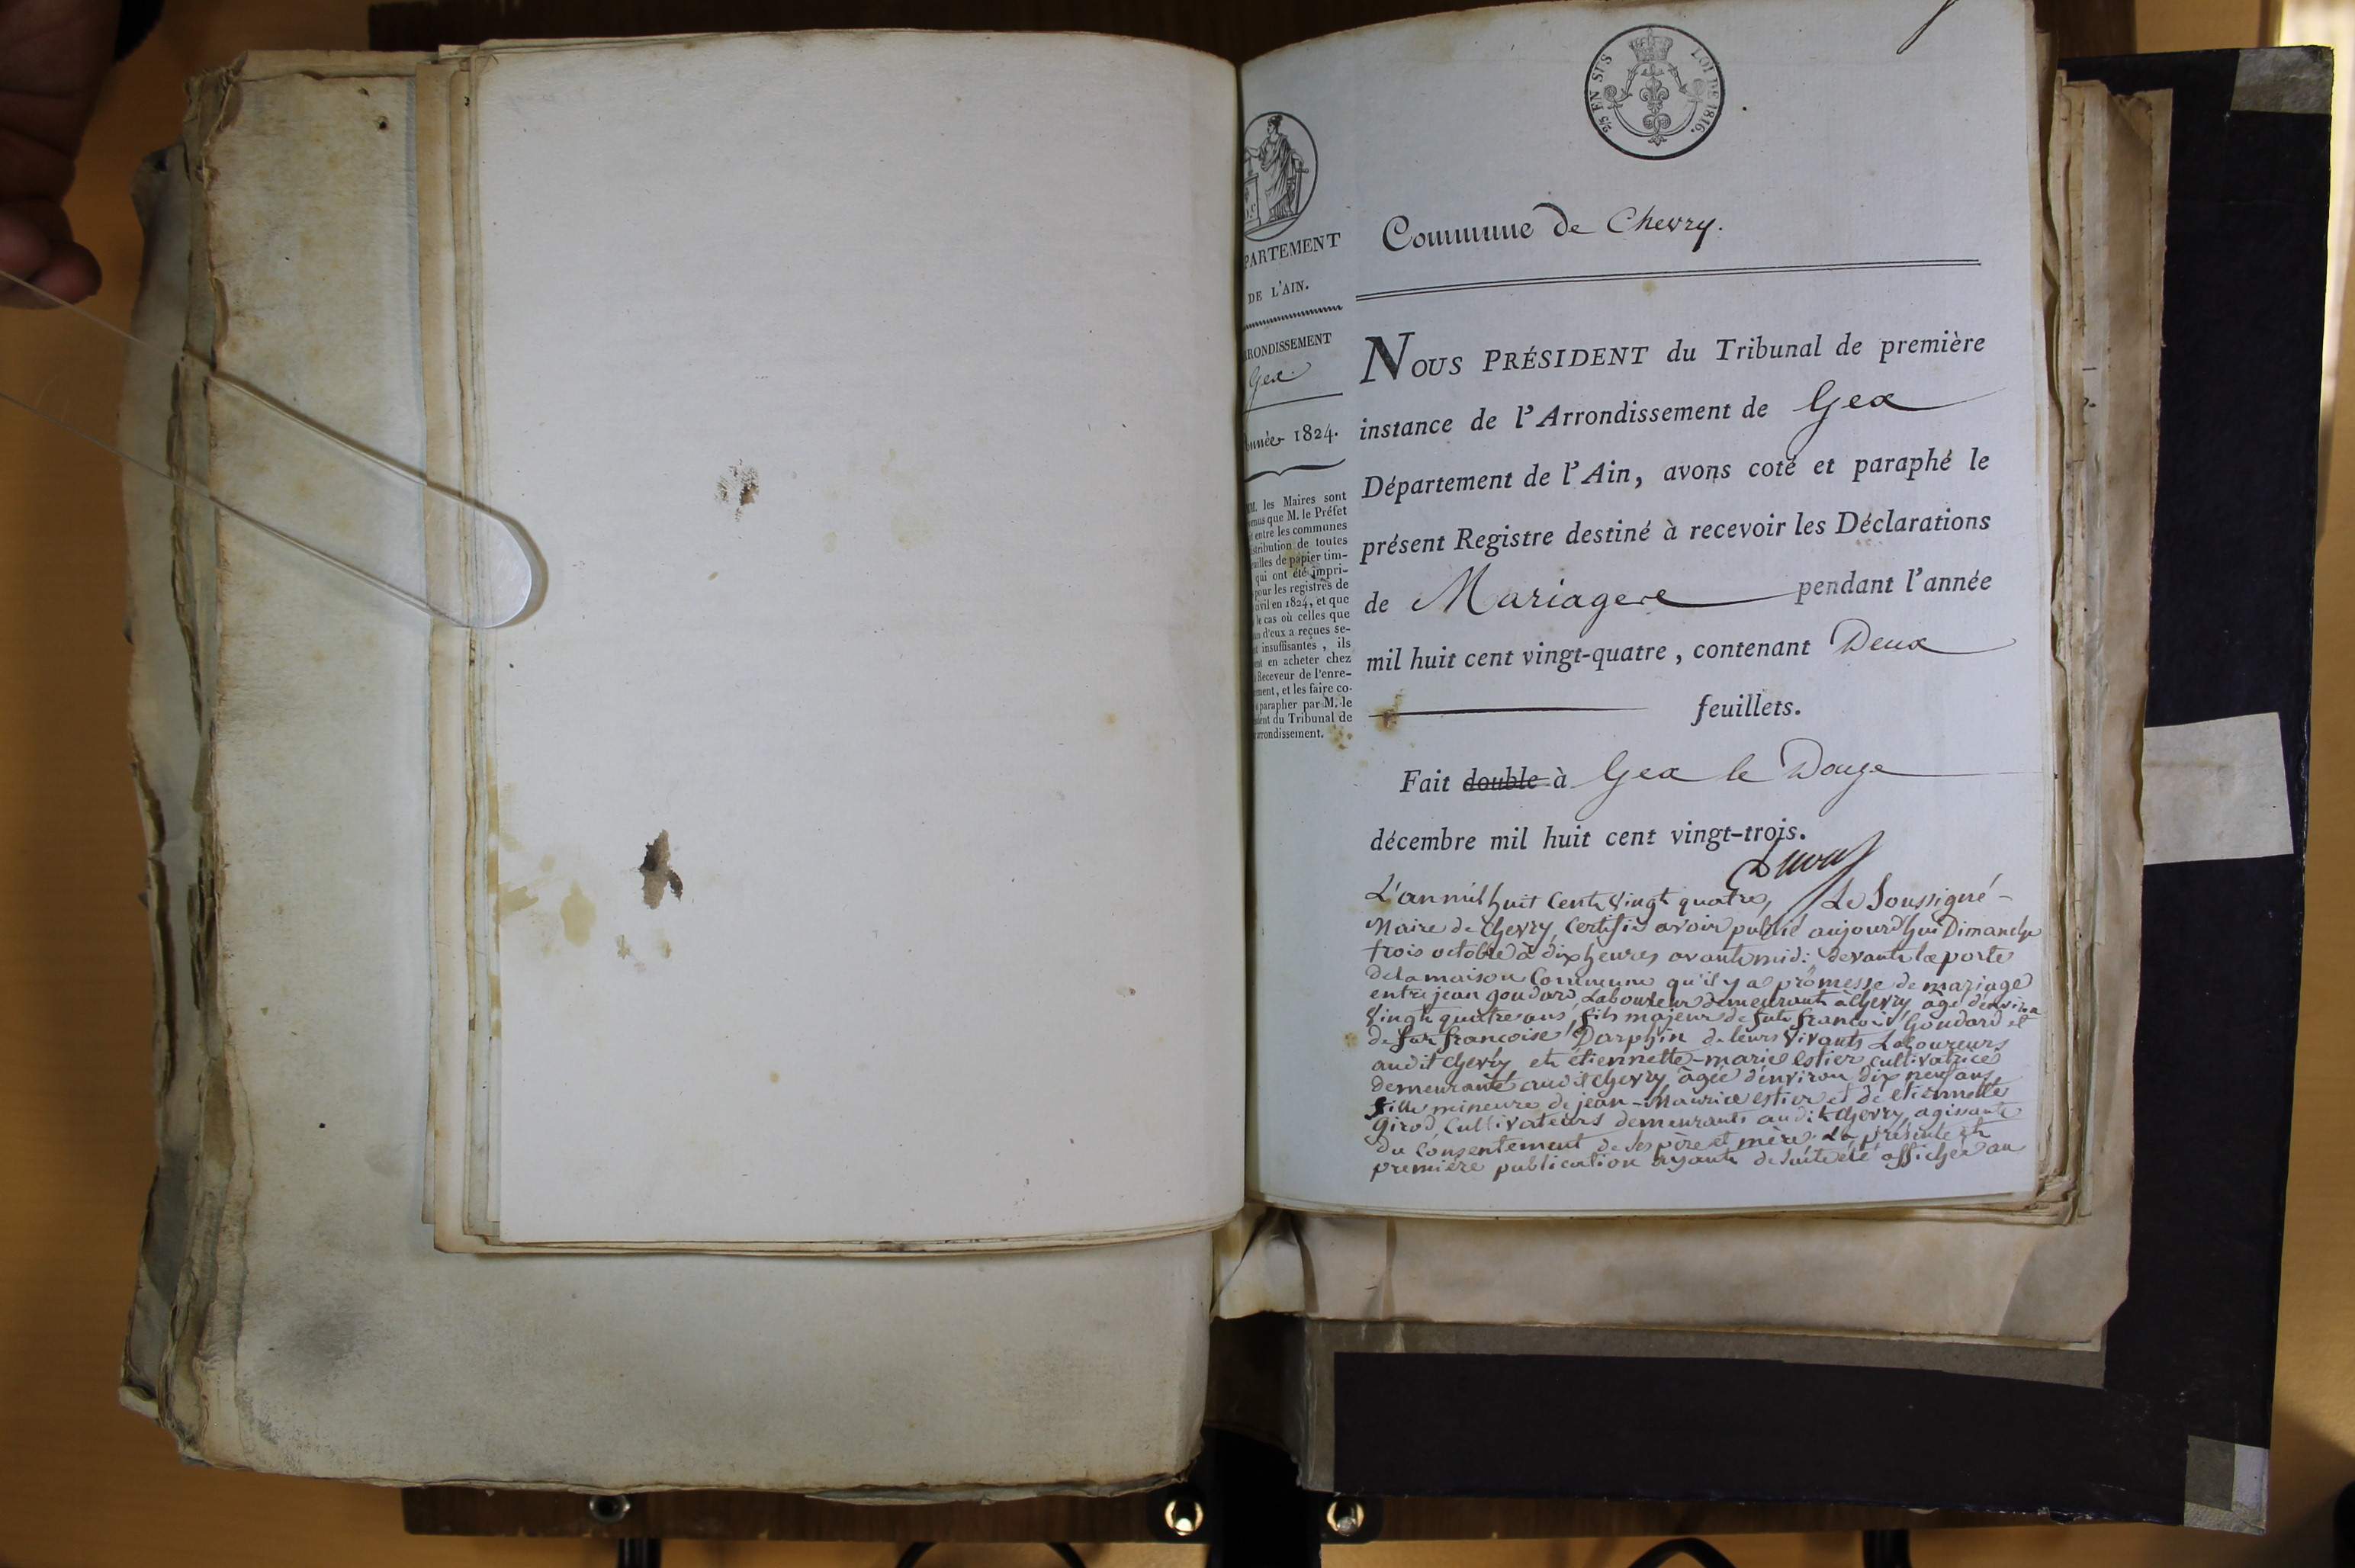 2/5 EN SUS
LOI DE 1816.
PARTEMENT
DE L'AIN.
RRONDISSEMENT
Gex
nnée 1824.
MM. les Maires sont
nus que M. le Préfet
t entre les communes
stribution de toutes
uilles de papier tim-
qui ont été impri-
pour les registres de
civil en 1824, et que
le cas où celles que
un d'eux a reçues se-
t insuffisantes, ils
ont en acheter chez
Receveur de l'enre-
ement, et les faire co-
parapher par M. le
sident du Tribunal de
arrondissement.
Commune de Chevry.
NOUS PRÉSIDENT du Tribunal de première
instance de l'Arrondissement de Gex
Département de l'Ain, avons coté et paraphé le
présent Registre destiné à recevoir les Déclarations
de Mariage pendant l'année
mil huit cent vingt-quatre, contenant Deux
feuillets.
Fait double à Gex le Douze
décembre mil huit cent vingt-trois.
L'an mil huit Cent vingt quatre, Le Soussigné
Maire de Chevry, Certifie avoir publié aujourd'hui Dimanche
trois octobre à dix heures avant midi devant la porte
de la maison Commune qu'il y a promesse de mariage
entre jean goudard, Laboureur demeurant à Chevry âgé d'environ
vingt quatre ans, fils majeur de fut françois Goudard et
de fue françoise Darphin de leurs vivants Laboureurs
audit Chevry, et étiennette-marie estier cultivatrice
demeurante audit Chevry âgée d'environ dix neuf ans
fille mineure de jean-Maurice estier et de étiennette
girod, Cultivateurs demeurants audit Chevry, agissante
du Consentement de ses père et mère. La présente et
première publication ayant de suite été affichée au